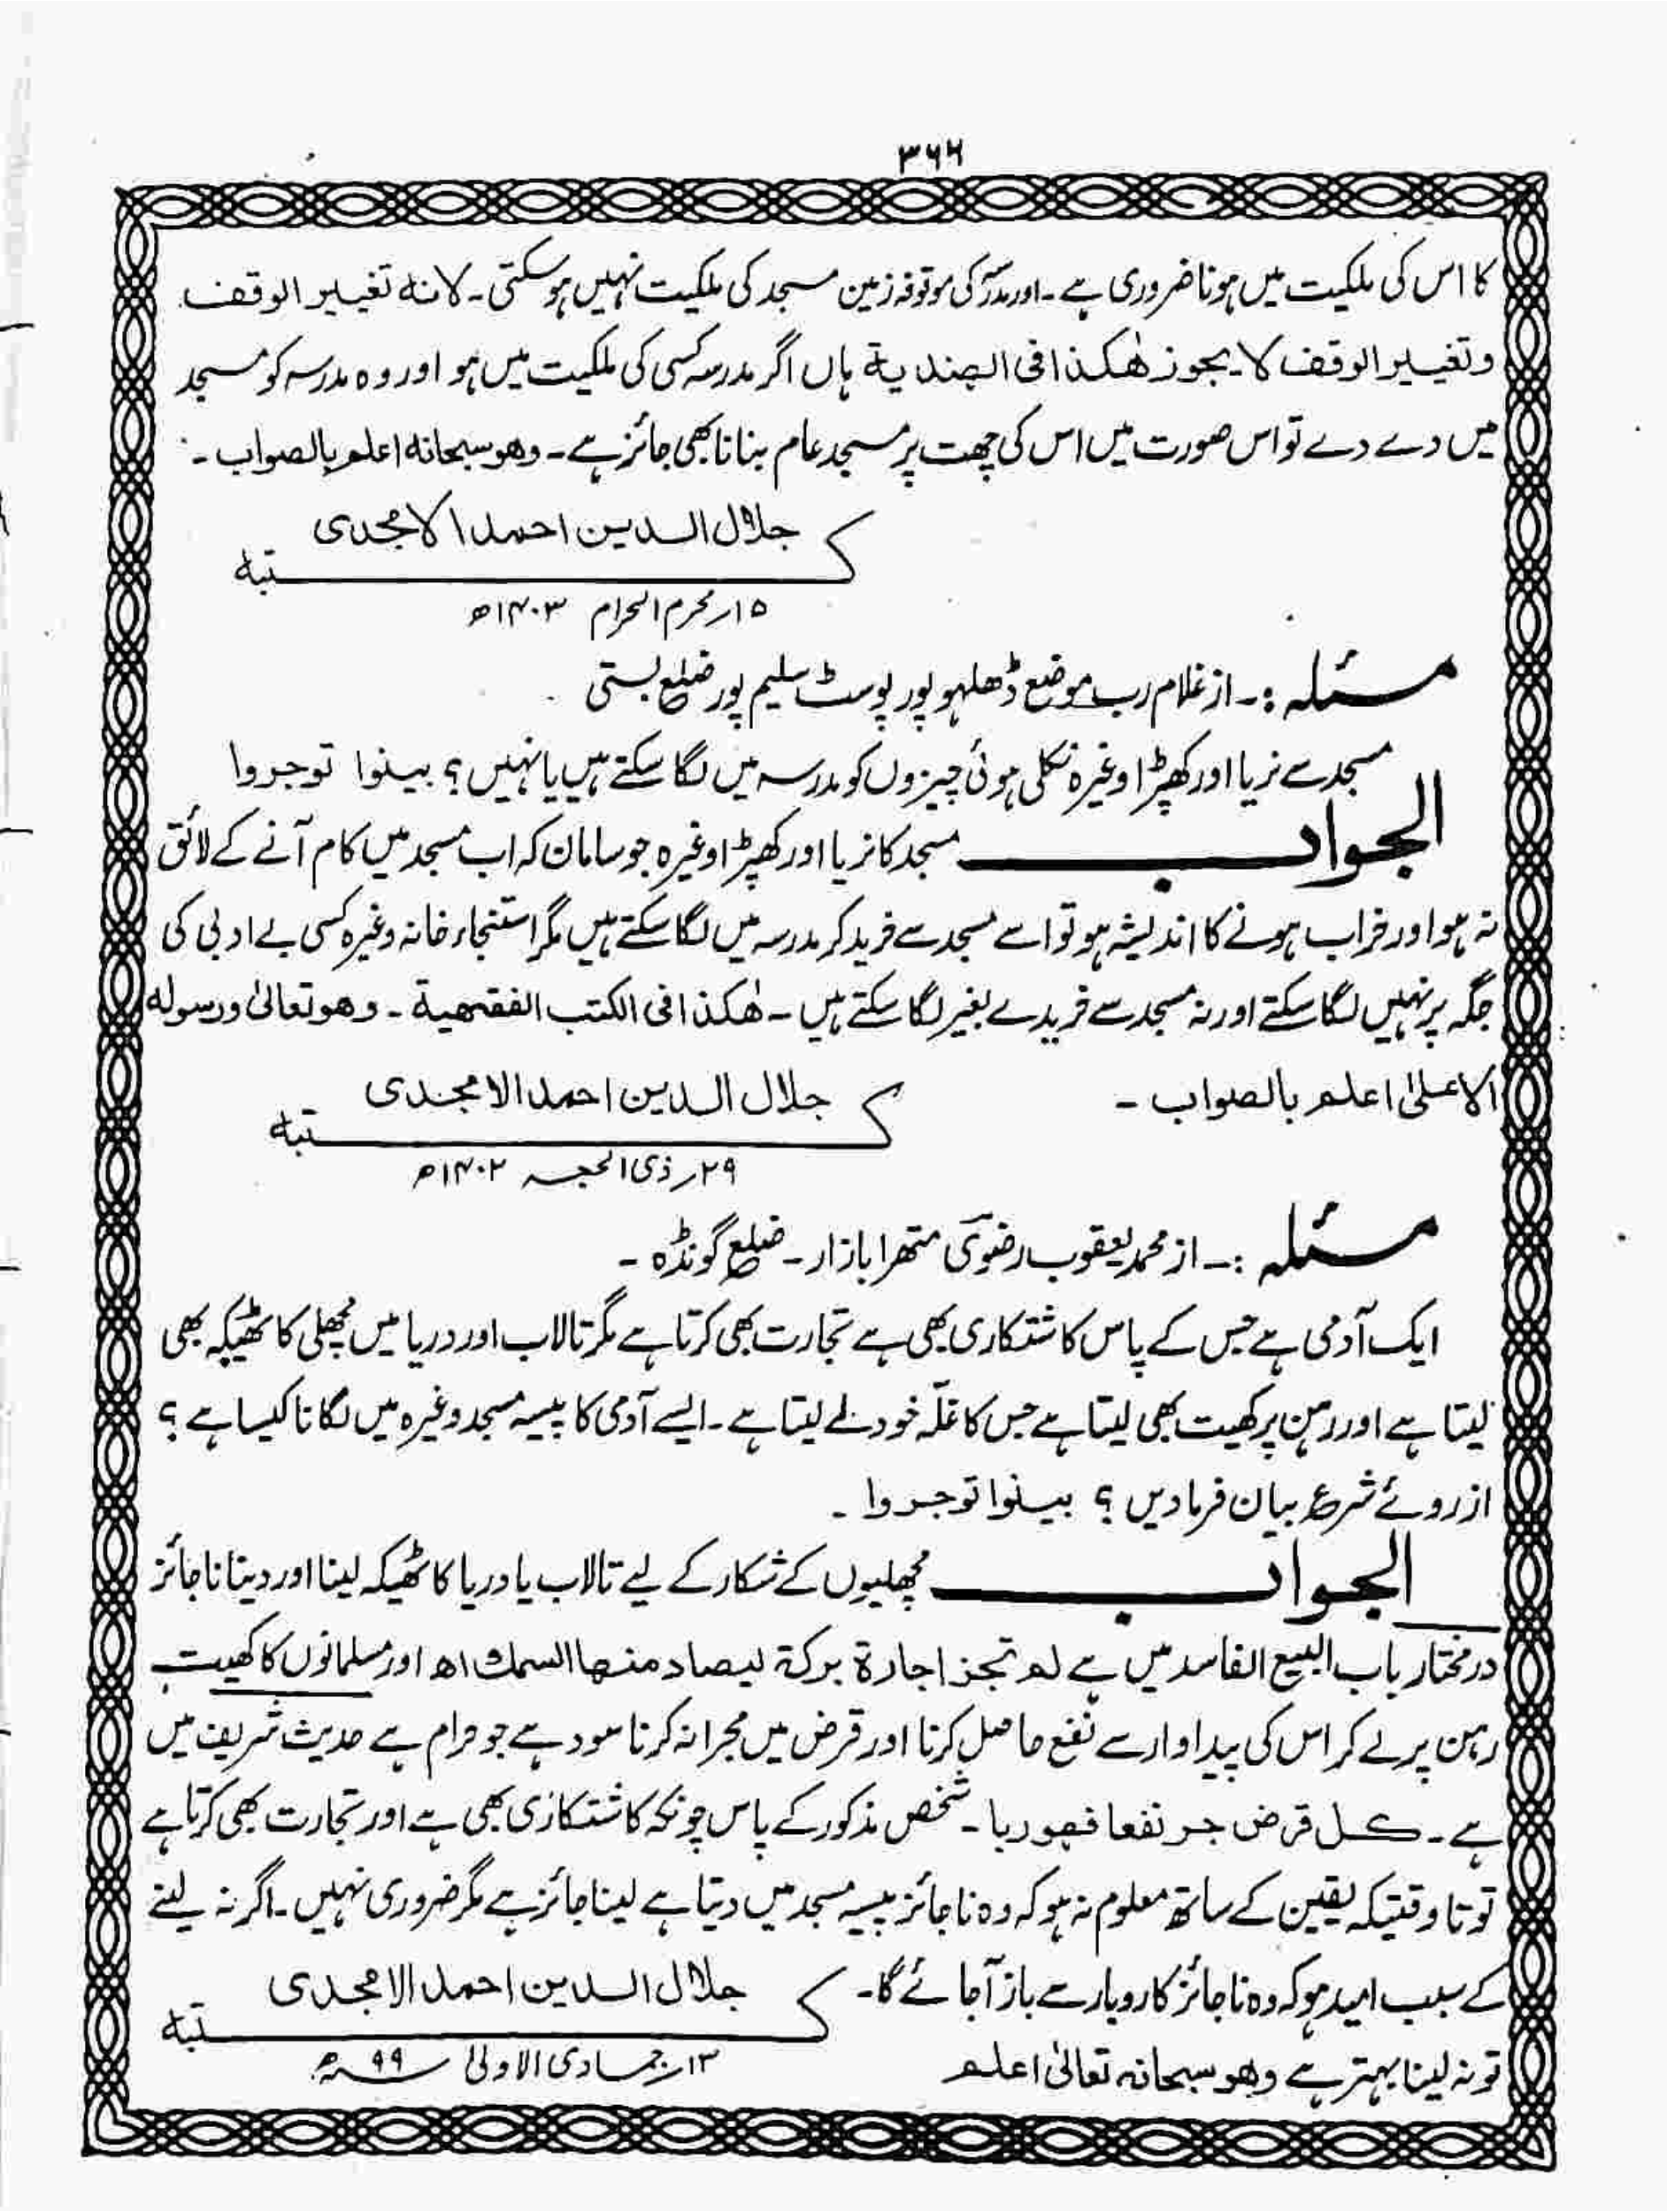 ۳۶۶
کا اس کی ملکیت میں ہونا ضروری ہے۔ اور مدرسہ کی موقوفہ زمین مسجد کی ملکیت نہیں ہو سکتی۔ لانہ تغییر الوقف
وتغییر الوقف لا یجوز ھٰکذا فی الھندیۃ ہاں اگر مدرسہ کسی کی ملکیت میں ہو اور وہ مدرسہ کو مسجد
میں دے دے تو اس صورت میں اس کی چھت پر مسجد عام بنانا بھی جائز ہے۔ وھو سبحانہ اعلم بالصواب۔
جلال الدین احمد الامجدی
کتبہ
۱۵؍ محرم الحرام ۱۴۰۳ھ
مسئلہ :۔ از غلام رب موضع ڈھلہو پور پوسٹ سلیم پور ضلع بستی
مسجد سے نریا اور کھپڑا وغیرہ نکلی ہوئی چیزوں کو مدرسہ میں لگا سکتے ہیں یا نہیں؟ بینوا توجروا
الجواب مسجد کا نریا اور کھپڑا وغیرہ جو سامان کہ اب مسجد میں کام آنے کے لائق
نہ ہو اور خراب ہونے کا اندیشہ ہو تو اسے مسجد سے خرید کر مدرسہ میں لگا سکتے ہیں مگر استنجاء خانہ وغیرہ کسی بے ادبی کی
جگہ پر نہیں لگا سکتے اور نہ مسجد سے خریدے بغیر لگا سکتے ہیں۔ ھٰکذا فی الکتب الفقھیۃ۔ وھو تعالیٰ ورسولہ
الاعلیٰ اعلم بالصواب۔
جلال الدین احمد الامجدی
کتبہ
۲۹؍ ذی الحجہ ۱۴۰۲ھ
مسئلہ :۔ از محمد یعقوب رضوی متھرا بازار۔ ضلع گونڈہ۔
ایک آدمی ہے جس کے پاس کاشتکاری بھی ہے تجارت بھی کرتا ہے مگر تالاب اور دریا میں مچھلی کا ٹھیکہ بھی
لیتا ہے اور رہن پر کھیت بھی لیتا ہے جس کا غلّہ خود لے لیتا ہے۔ ایسے آدمی کا پیسہ مسجد وغیرہ میں لگانا کیسا ہے؟
از روئے شرع بیان فرما دیں؟ بینوا توجروا۔
الجواب مچھلیوں کے شکار کے لیے تالاب یا دریا کا ٹھیکہ لینا اور دینا ناجائز
درمختار باب البیع الفاسد میں ہے لم تجز اجارۃ برکۃ لیصاد منھا السمک اھ اور مسلمانوں کا کھیت
رہن پر لے کر اس کی پیداوار سے نفع حاصل کرنا اور قرض میں مجرا نہ کرنا سود ہے جو حرام ہے حدیث شریف میں
ہے۔ کل قرض جر نفعا فھو ربا۔ شخص مذکور کے پاس چونکہ کاشتکاری بھی ہے اور تجارت بھی کرتا ہے
تو تا وقتیکہ یقین کے ساتھ معلوم نہ ہو کہ وہ ناجائز پیسہ مسجد میں دیتا ہے لینا جائز ہے مگر ضروری نہیں۔ اگر نہ لینے
کے سبب امید ہو کہ وہ ناجائز کاروبار سے باز آ جائے گا۔
تو نہ لینا بہتر ہے وھو سبحانہ تعالیٰ اعلم
جلال الدین احمد الامجدی
کتبہ
۱۳؍ جمادی الاولیٰ ۹۹ھ